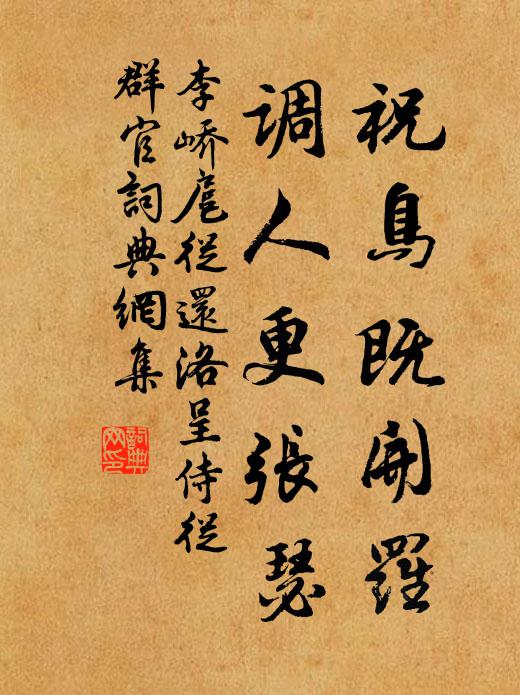 祝鳥既開羅
调人更張瑟
李嶠扈從還洛呈侍從
群官詞典網集
詞典
网印